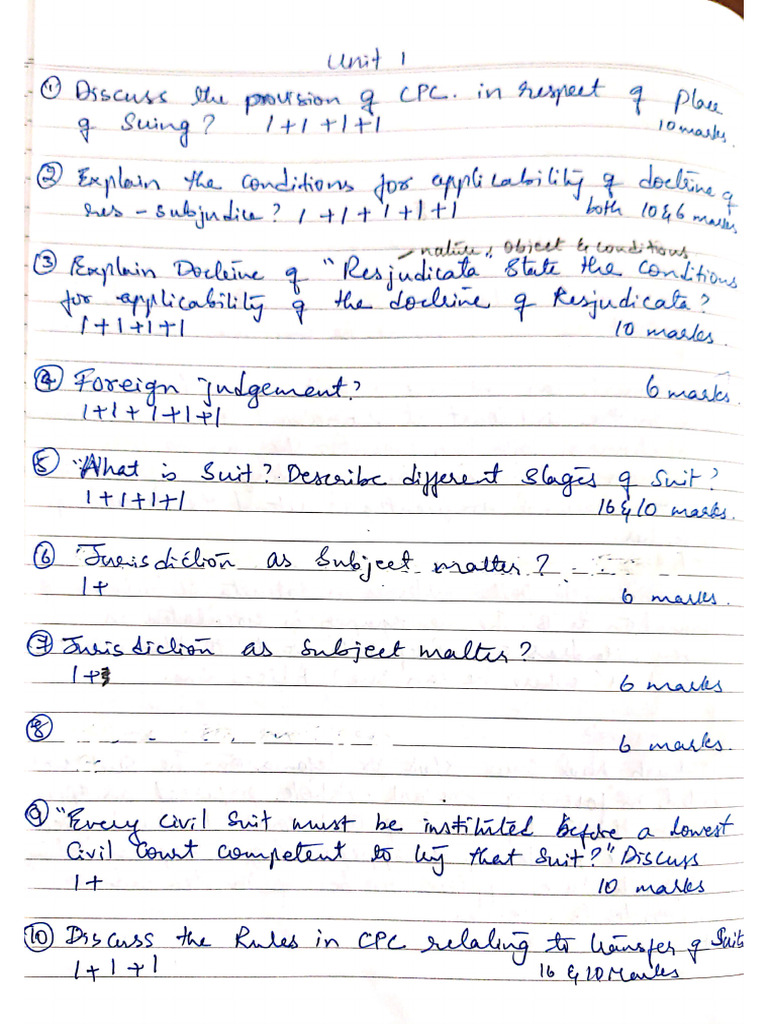 Unit 1
① Discuss the provision of CPC. in respect of place
of Suing? 1+1+1+1 10 marks.
② Explain the conditions for applicability of doctrine of
res-subjudice? 1+1+1+1+1 both 10 & 6 marks
- nature, object & conditions
③ Explain Doctrine of "Resjudicata State the conditions
for applicability of the doctrine of Resjudicata?
1+1+1+1 10 marks.
④ Foreign judgement? 6 marks.
1+1+1+1+1
⑤ "What is Suit? Describe different Stages of Suit?
1+1+1+1 16 & 10 marks.
⑥ "Jurisdiction as Subject matter?
1+ 6 marks.
⑦ Jurisdiction as Subject matter?
1+ 6 marks
⑧ 6 marks.
⑨ "Every Civil Suit must be instituted before a lowest
Civil Court competent to try that Suit?" Discuss
1+ 10 marks
⑩ Discuss the Rules in CPC relating to transfer of Suits
1+1+1 16 & 10 Marks